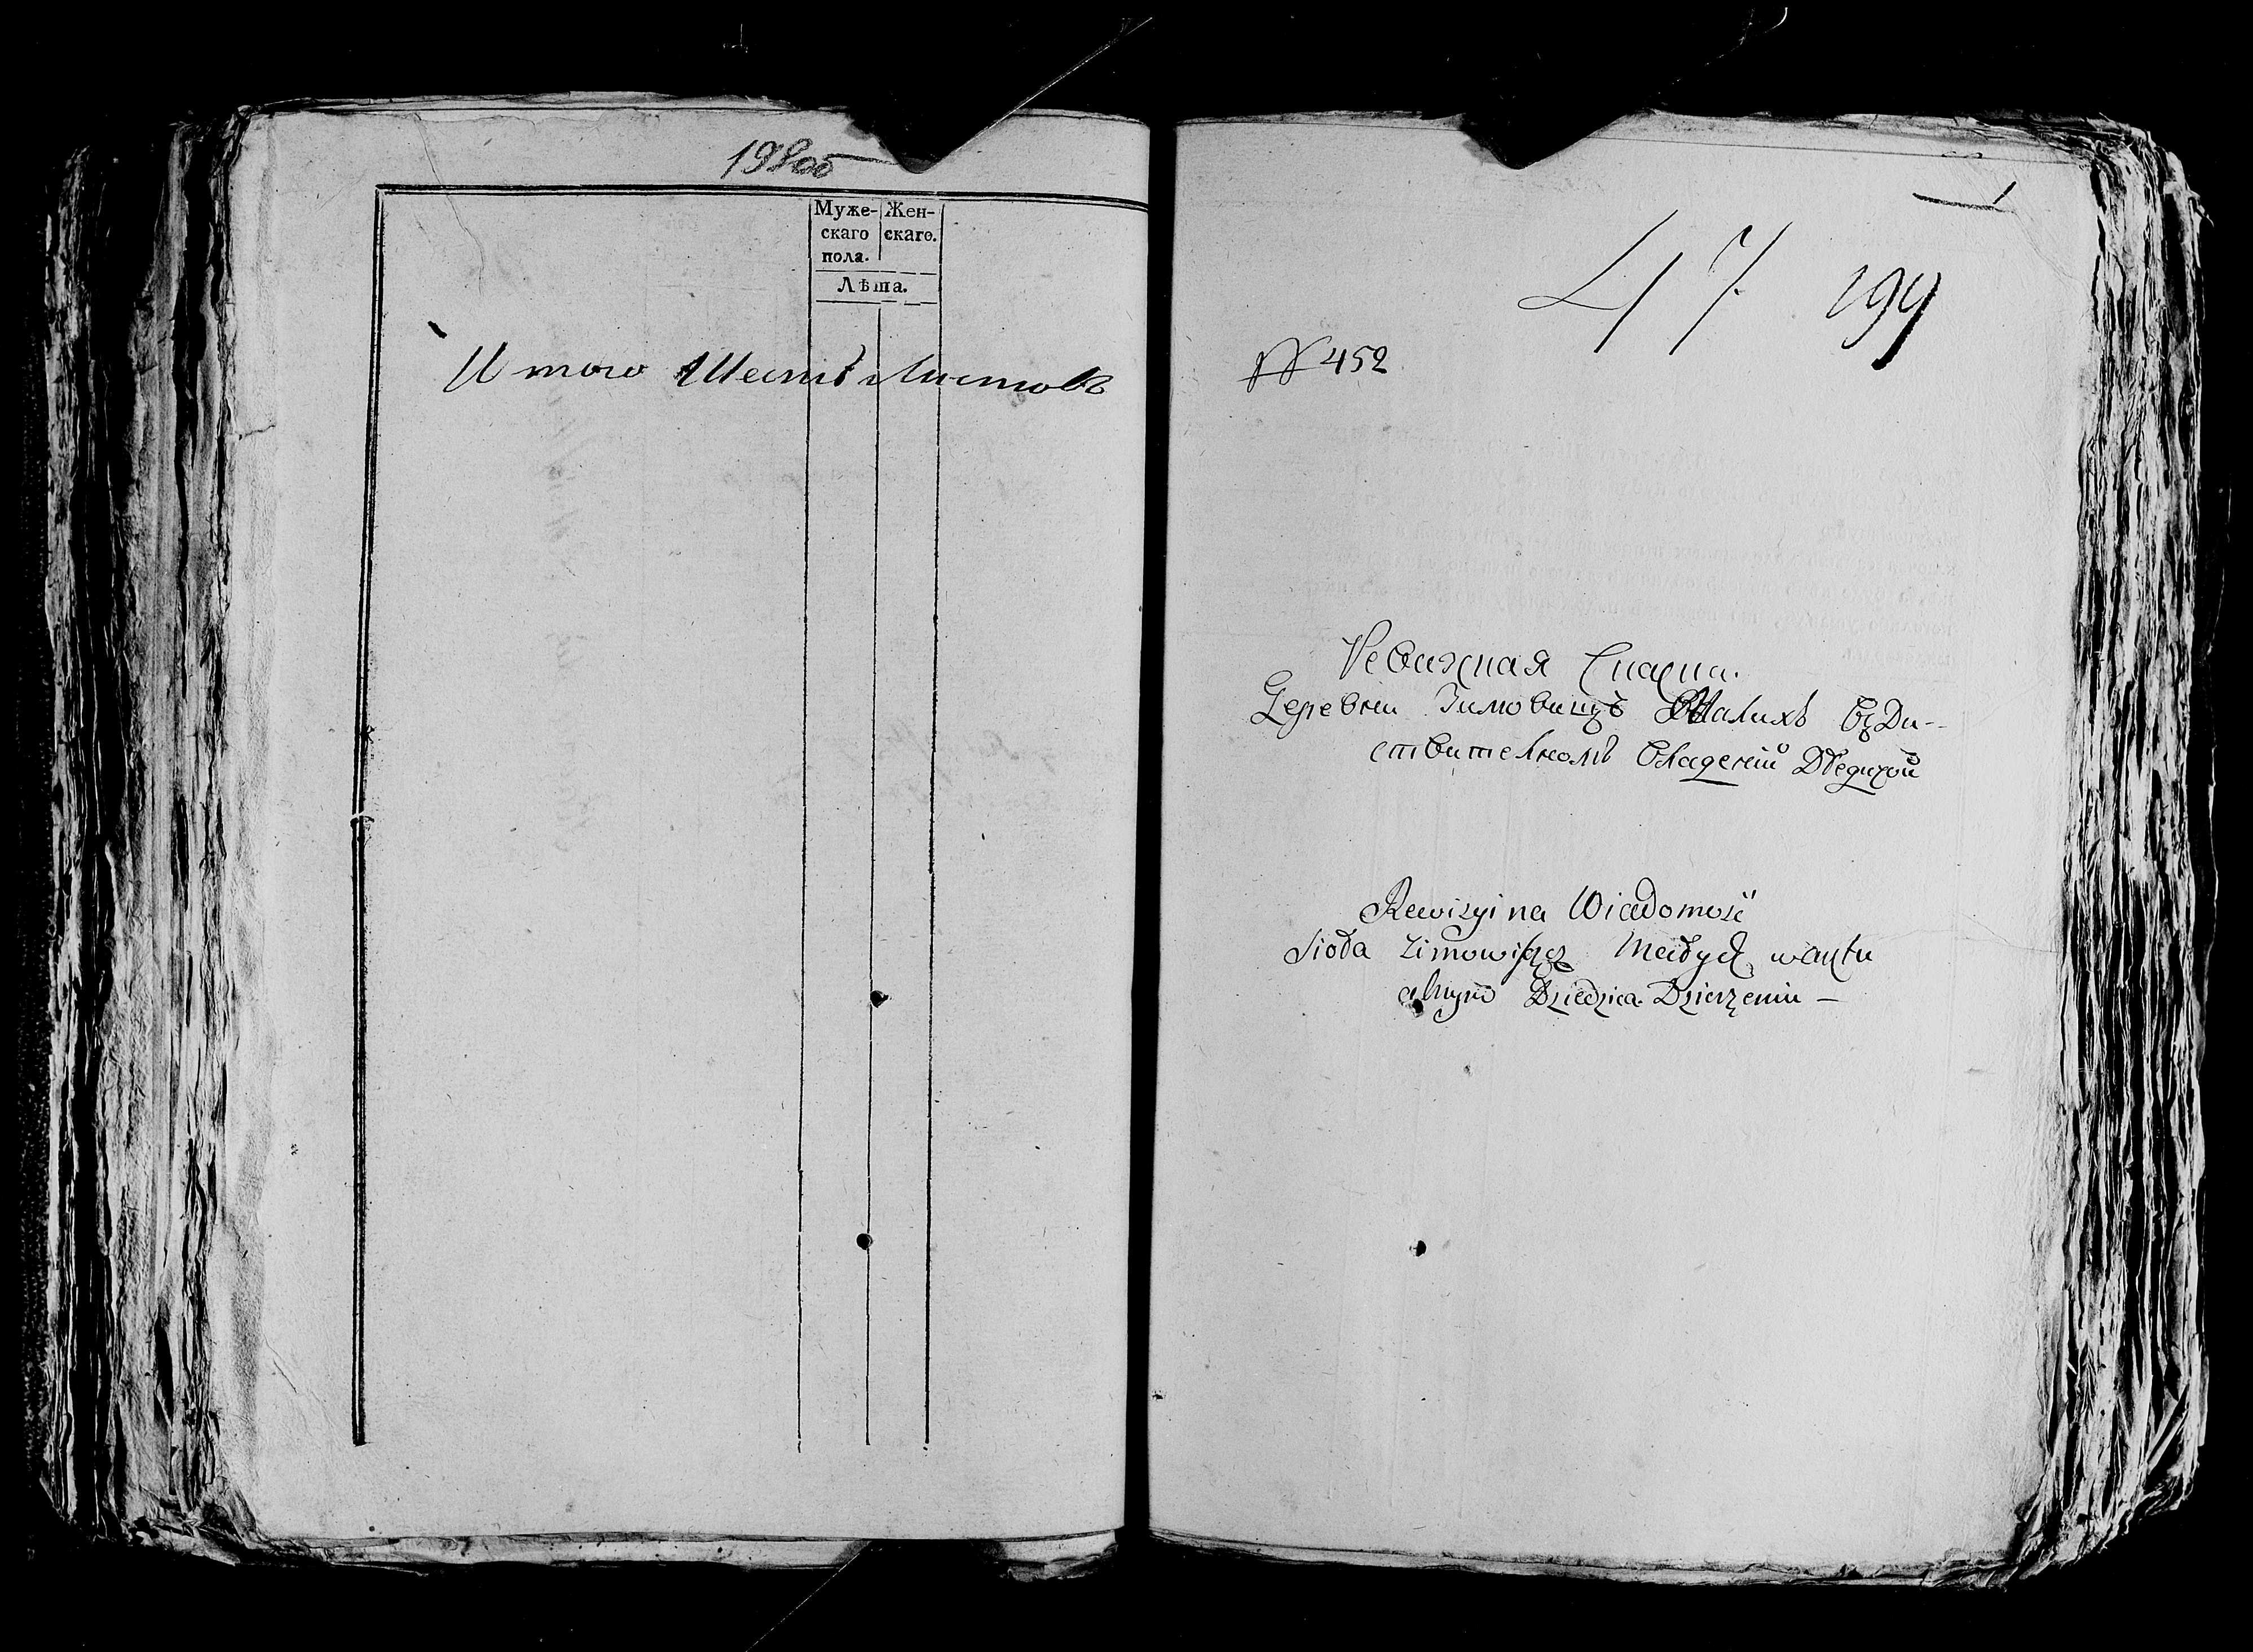 198 об
Муже- Жен-
скаго скаго.
пола.
Лѣта.
Итого Шесть Листовъ
1
47 199
№ 452
Ревизкая Сказка.
Деревни Зимовищъ Малихъ въ Ди--
ствителномъ Владеніи Дѣдичой
Rewizyina Wiadomość
Sioła Zimowiszcz Małych w aktu
alnym Dziedzica Dzierżeniu —